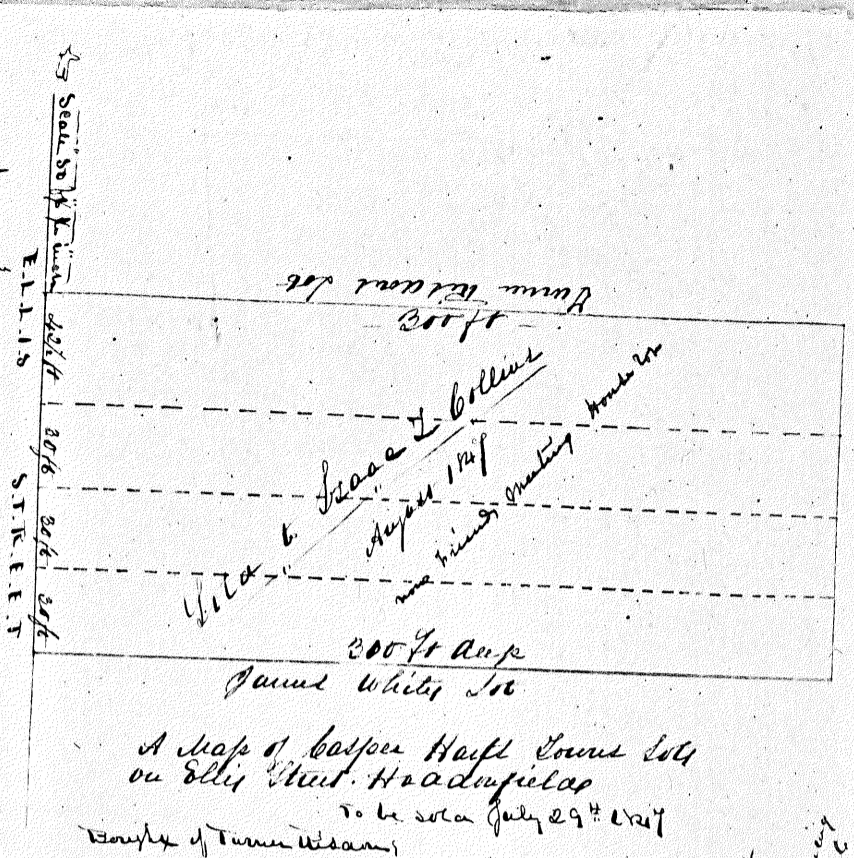 Scale 30 ft to an inch
E.L.L.I.S
S.T.R.E.E.T
42½ ft
30 ft
30 ft
30 ft
Turner Risdons Lot
300 ft
Sold to Isaac L Collins
August 1847
now Friends Meeting House Lot
300 ft deep
James Whites Lot
A Map of Casper Harts Towns Lots
on Ellis Street. Haddonfield
To be sold July 29th 1847
Bought of Turner Risdon